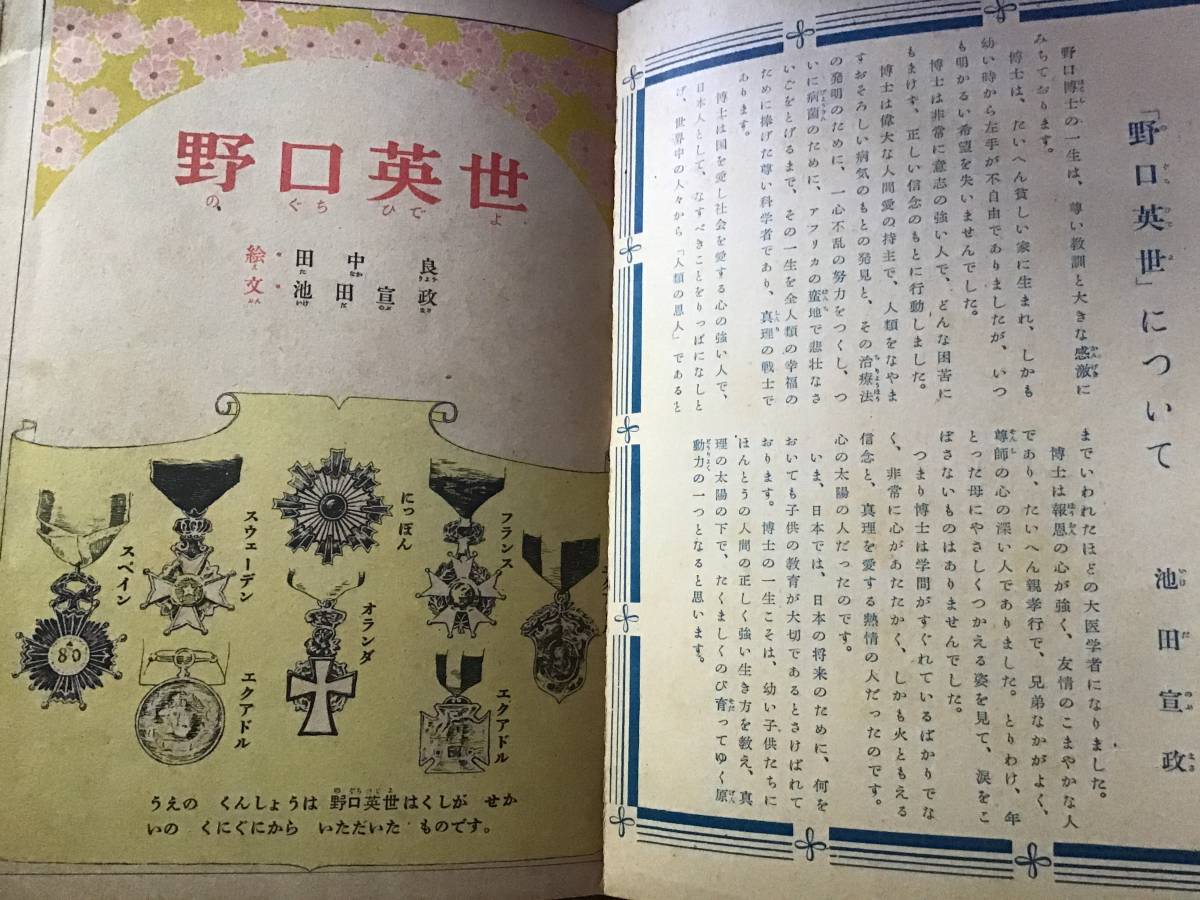 「野口英世」について
池田宣政
野口博士の一生は、尊い教訓と大きな感激に
みちております。
博士は、たいへん貧しい家に生まれ、しかも
幼い時から左手が不自由でありましたが、いつ
も明かるい希望を失いませんでした。
博士は非常に意志の強い人で、どんな困苦に
もまけず、正しい信念のもとに行動しました。
博士は偉大な人間愛の持主で、人類をなやま
すおそろしい病気のもとの発見と、その治療法
の発明のために、一心不乱の努力をつくし、つ
いに病菌のために、アフリカの蛮地で悲壮なさ
いごをとげるまで、その一生を全人類の幸福の
ために捧げた尊い科学者であり、真理の戦士で
あります。
博士は国を愛し社会を愛する心の強い人で、
日本人として、なすべきことをりっぱになしと
げ、世界中の人々から「人類の恩人」であると
までいわれたほどの大医学者になりました。
博士は報恩の心が強く、友情のこまやかな人
であり、たいへん親孝行で、兄弟なかがよく、
尊師の心の深い人でありました。とりわけ、年
とった母にやさしくつかえる姿を見て、涙をこ
ぼさないものはありませんでした。
つまり博士は学問がすぐれているばかりでな
く、非常に心があたたかく、しかも火ともえる
信念と、真理を愛する熱情の人だったのです。
心の太陽の人だったのです。
いま、日本では、日本の将来のために、何を
おいても子供の教育が大切であるとさけばれて
おります。博士の一生こそは、幼い子供たちに
ほんとうの人間の正しく強い生き方を教え、真
理の太陽の下で、たくましくのび育ってゆく原
動力の一つとなると思います。
野口英世
のぐちひでよ
絵・田中良
文・池田宣政
フランス
にっぽん
スウェーデン
スペイン
オランダ
エクアドル
エクアドル
80
うえの くんしょうは 野口英世はくしが せか
いの くにぐにから いただいた ものです。